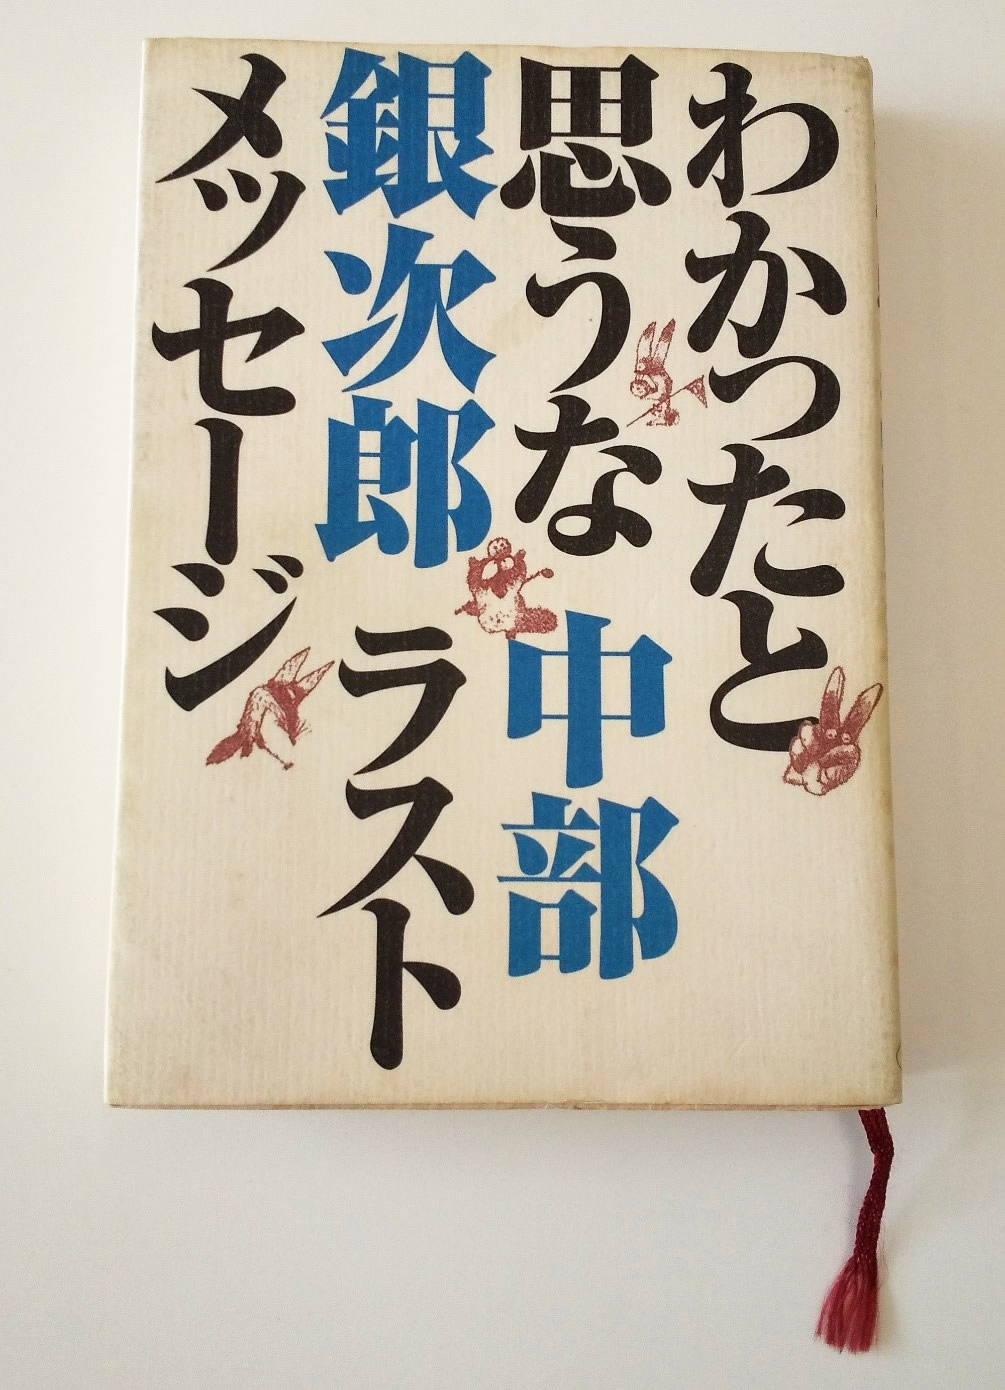 わかったと
思うな 中部
銀次郎 ラスト
メッセージ